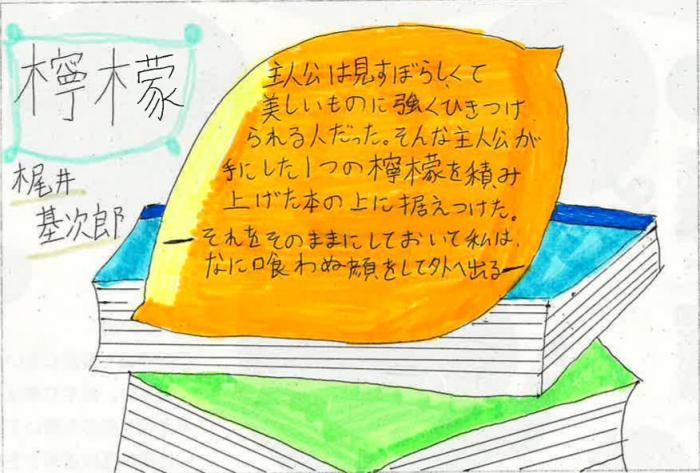 檸檬
梶井
基次郎
主人公は見すぼらしくて
美しいものに強くひきつけ
られる人だった。そんな主人公が
手にした1つの檸檬を積み
上げた本の上に据えつけた。
―それをそのままにしておいて私は、
なに喰わぬ顔をして外へ出る―